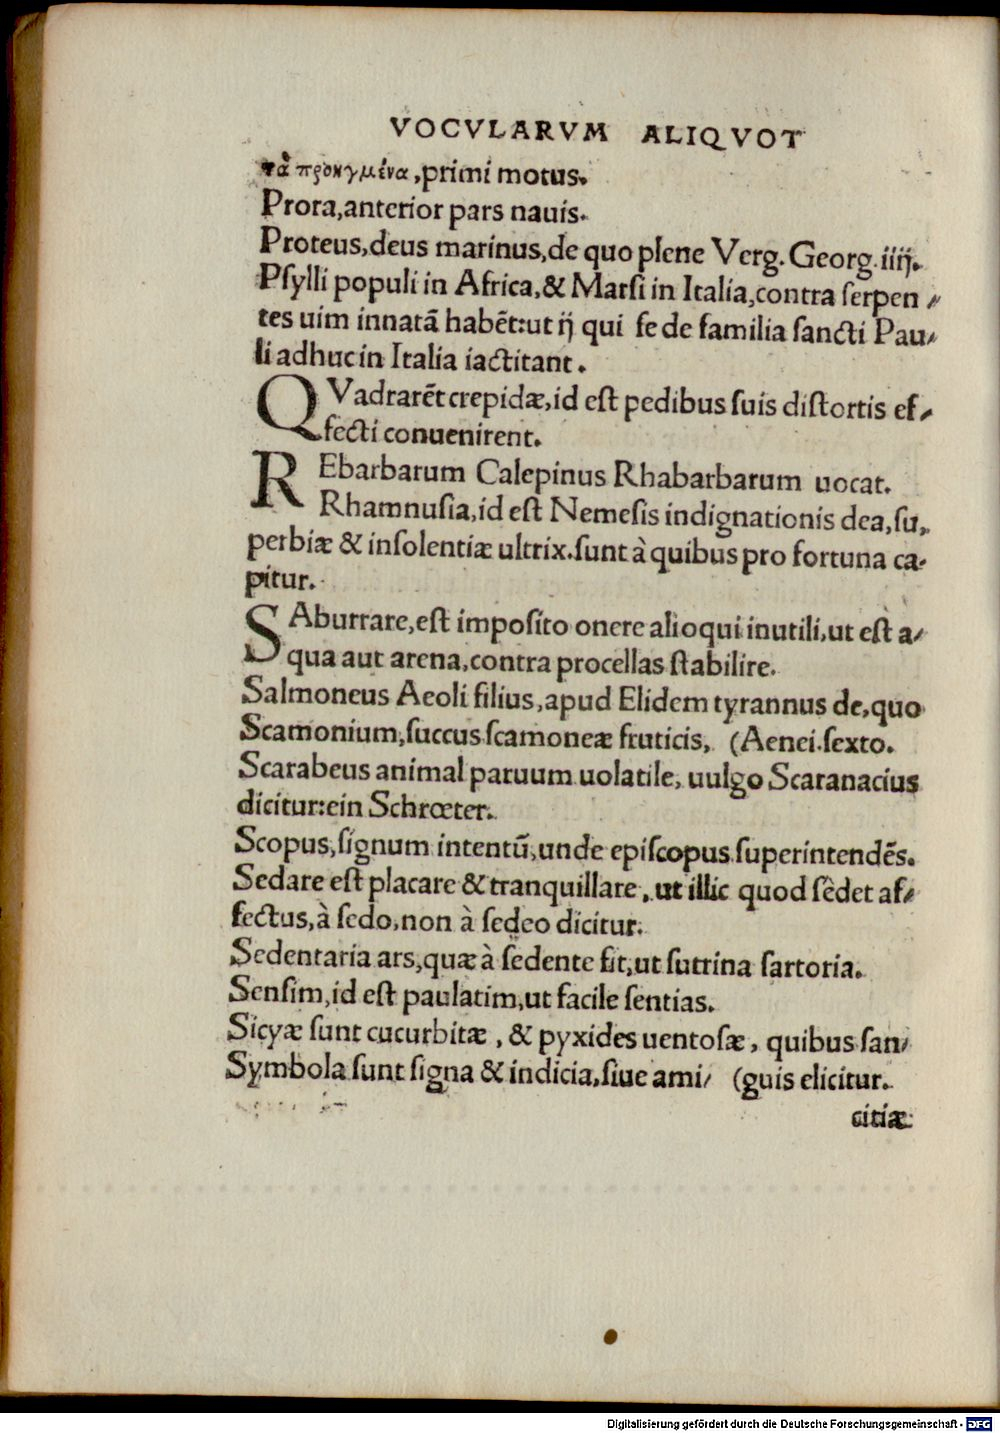 VOCVLARVM ALIQVOT
τὰ προηγμένα, primi motus.
Prora, anterior pars nauis.
Proteus, deus marinus, de quo plene Verg. Georg. iiij.
Pſylli populi in Africa, & Marſi in Italia, contra ſerpen⸗
tes uim innatā habēt: ut ij qui ſe de familia ſancti Pau⸗
li adhuc in Italia iactitant.
QVadrarēt crepidæ, id eſt pedibus ſuis diſtortis ef⸗
fecti conuenirent.
REbarbarum Calepinus Rhabarbarum uocat.
Rhamnuſia, id eſt Nemeſis indignationis dea, ſu⸗
perbiæ & inſolentiæ ultrix. ſunt à quibus pro fortuna ca⸗
pitur.
SAburrare, eſt impoſito onere alioqui inutili, ut eſt a⸗
qua aut arena, contra procellas ſtabilire.
Salmoneus Aeoli filius, apud Elidem tyrannus de, quo
Scamonium, ſuccus ſcamoneæ fruticis, (Aenei. ſexto.
Scarabeus animal paruum uolatile, uulgo Scaranacius
dicitur: ein Schrœter.
Scopus, ſignum intentū, unde epiſcopus ſuperintendēs.
Sedare eſt placare & tranquillare, ut illic quod ſèdet af⸗
fectus, à ſedo, non à ſedeo dicitur.
Sedentaria ars, quæ à ſedente fit, ut ſutrina ſartoria.
Senſim, id eſt paulatim, ut facile ſentias.
Sicyæ ſunt cucurbitæ, & pyxides uentoſæ, quibus ſan⸗
Symbola ſunt ſigna & indicia, ſiue ami⸗ (guis elicitur.
citiæ
Digitalisierung gefördert durch die Deutsche Forschungsgemeinschaft - DFG